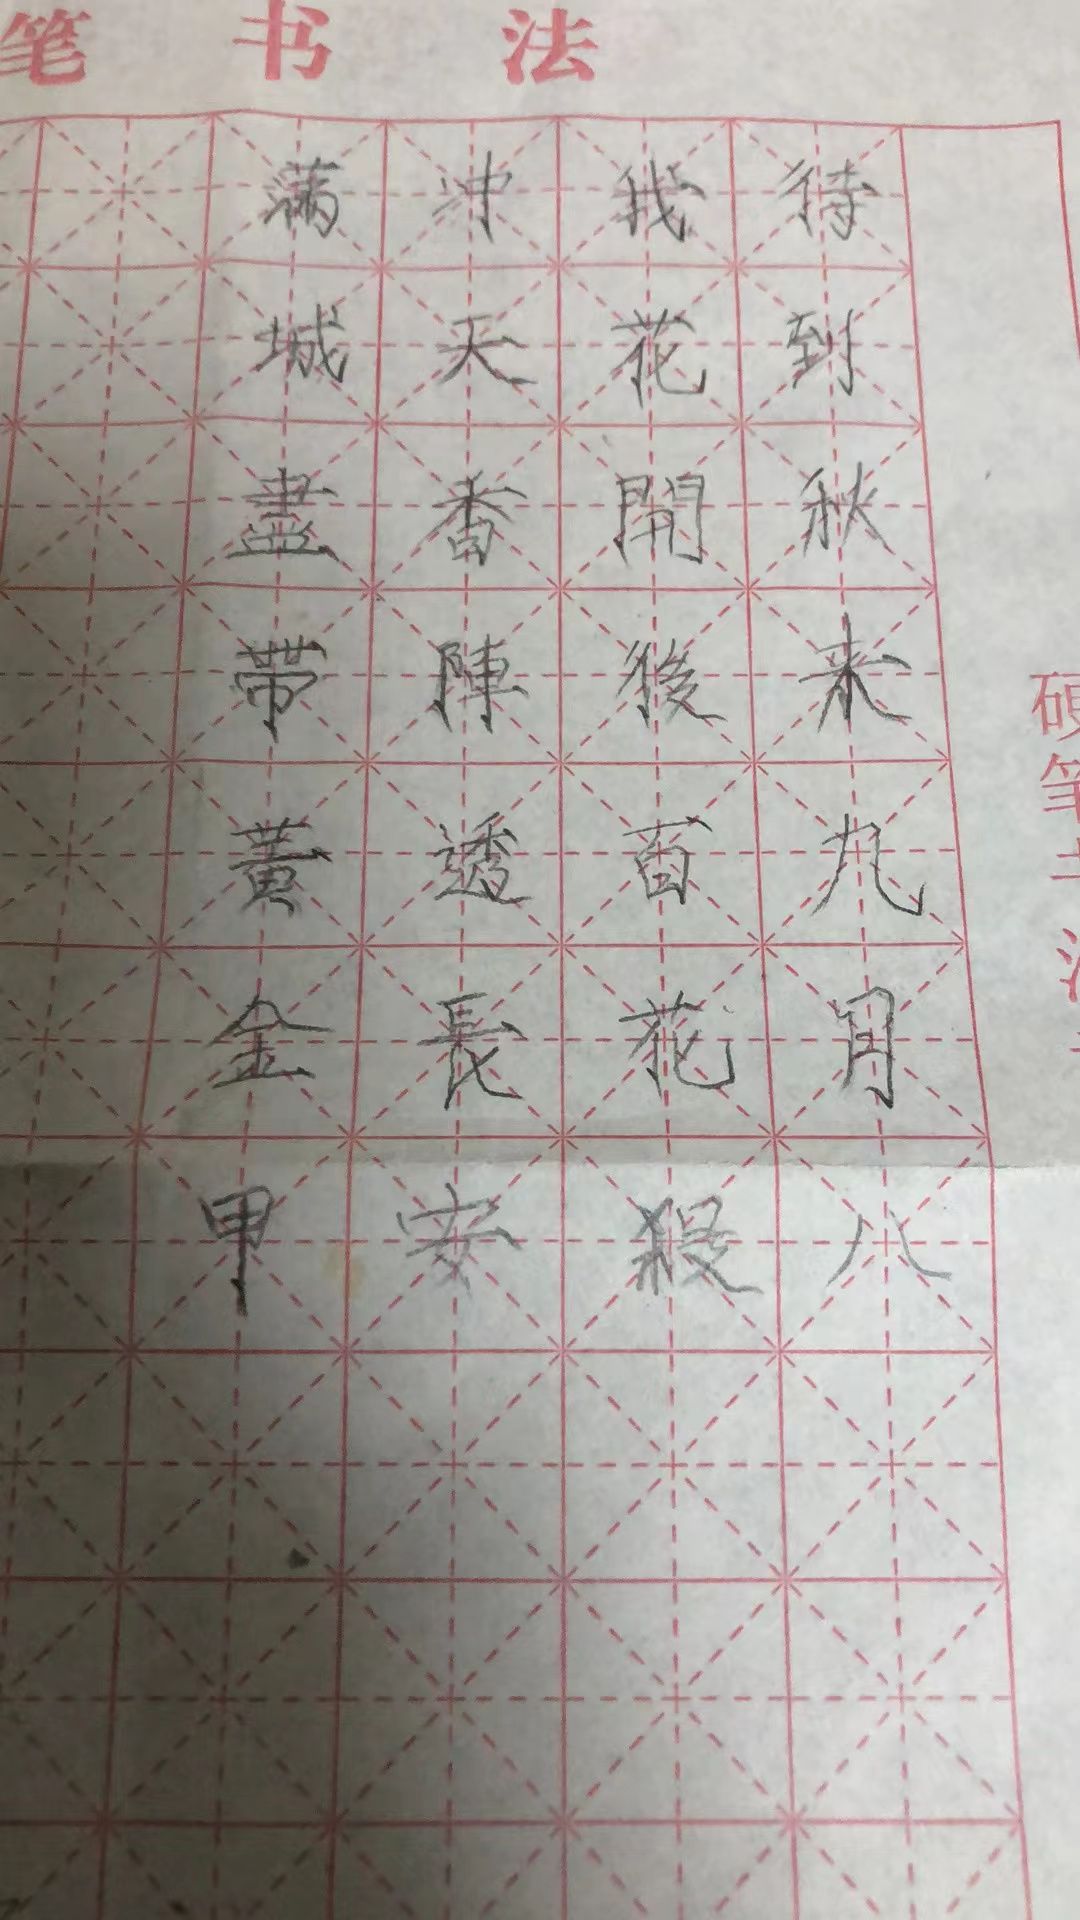 笔书法
待到秋来九月八
我花開後百花殺
冲天香陣透長安
满城盡带黃金甲
硬笔书法